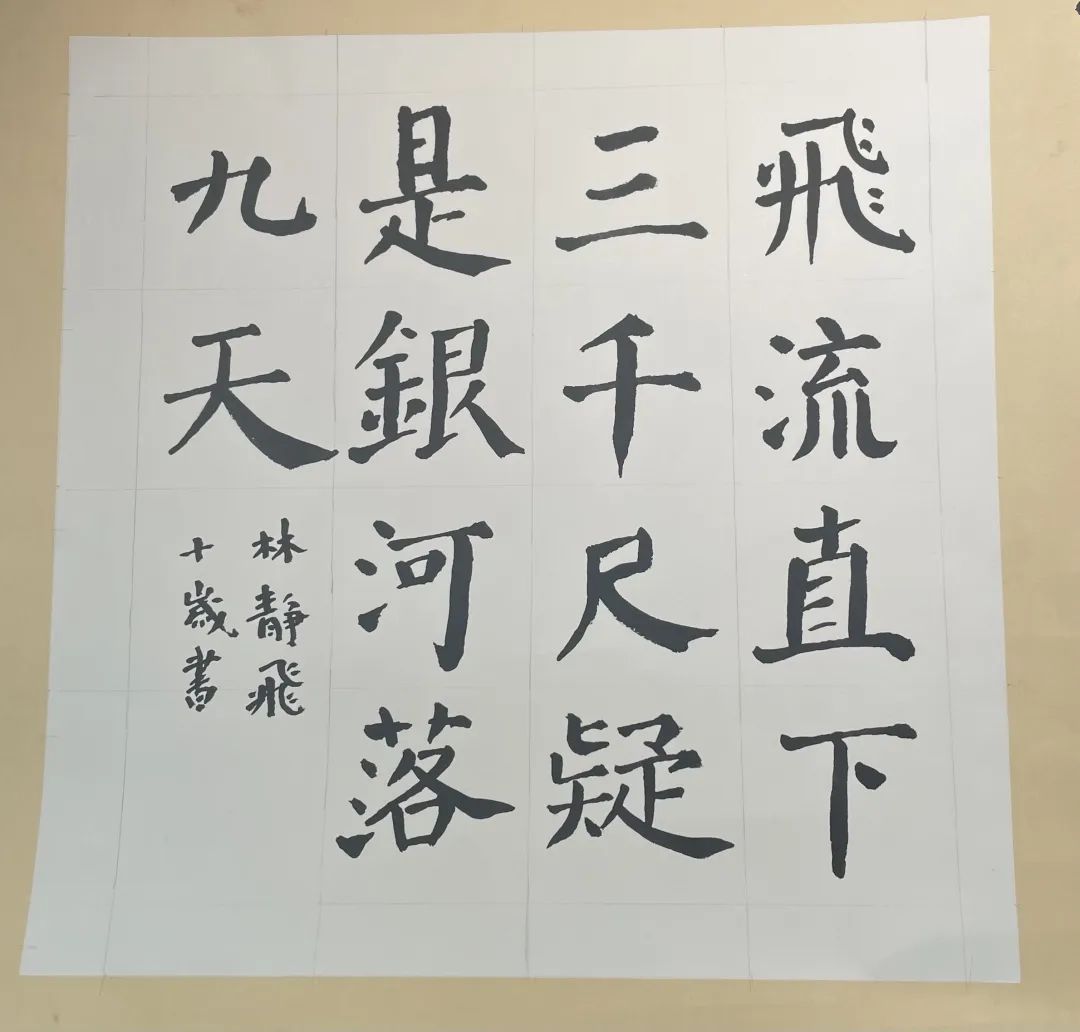 飛流直下
三千尺疑
是銀河落
九天
林靜飛
十歲書